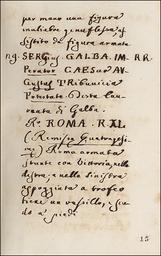 per mano una figura
muliebre genuflessa, as
sistito da figura armata
ng. SERgius. GALBA. IM. RR.
Perator CAESar AV-
Gustus TRibunicia
Potestate. Testa lau-
reata di Galba.
R. ROMA. R. XL.
(Remissa Quatrage
) Roma armata
stante con Vittoria nella
destra, e nella sinistra
appoggiata a trofeo
tiene un vassillo, e scu
do a' piedi
15